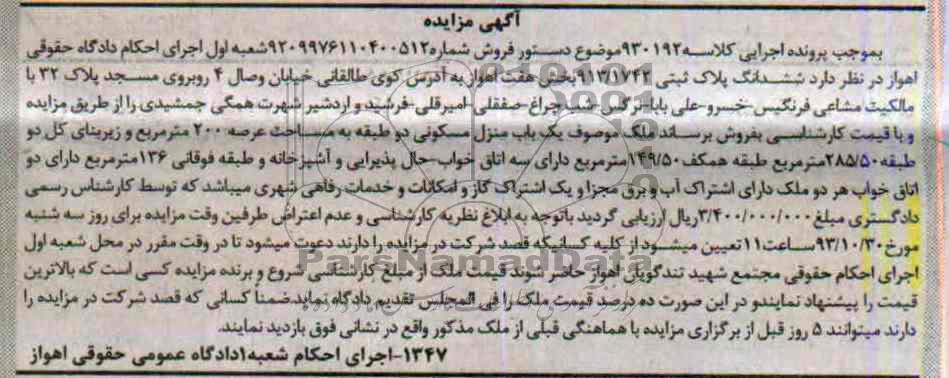 آگهی مزایده
بموجب پرونده اجرایی کلاسه ۹۳۰۱۹۲موضوع دستور فروش شماره۹۲۰۹۹۷۶۱۱۰۴۰۰۵۱۲شعبه اول اجرای احکام دادگاه حقوقی
اهواز در نظر دارد ششدانگ پلاک ثبتی ۹۱۳/۱۷۴۲بخش هفت اهواز به آدرس کوی طالقانی خیابان وصال ۴ روبروی مسجد پلاک ۳۲ با
مالکیت مشاعی فرنگیس-خسرو-علی بابا-نرگس-شب چراغ-صفقلی-امیرقلی-فرشید و اردشیر شهرت همگی جمشیدی را از طریق مزایده
و با قیمت کارشناسی بفروش برساند ملک موصوف یک باب منزل مسکونی دو طبقه به مساحت عرصه ۲۰۰ مترمربع و زیربنای کل دو
طبقه۲۸۵/۵۰مترمربع طبقه همکف۱۴۹/۵۰مترمربع دارای سه اتاق خواب-حال پذیرایی و آشپزخانه و طبقه فوقانی ۱۳۶مترمربع دارای دو
اتاق خواب هر دو ملک دارای اشتراک آب و برق مجزا و یک اشتراک گاز و امکانات و خدمات رفاهی شهری میباشد که توسط کارشناس رسمی
دادگستری مبلغ۳/۴۰۰/۰۰۰/۰۰۰ریال ارزیابی گردید باتوجه به ابلاغ نظریه کارشناسی و عدم اعتراض طرفین وقت مزایده برای روز سه شنبه
مورخ۹۳/۱۰/۳۰ساعت۱۱تعیین میشود از کلیه کسانیکه قصد شرکت در مزایده را دارند دعوت میشود تا در وقت مقرر در محل شعبه اول
اجرای احکام حقوقی مجتمع شهید تندگویان اهواز حاضر شوند قیمت ملک از مبلغ کارشناسی شروع و برنده مزایده کسی است که بالاترین
قیمت را پیشنهاد نمایندو در این صورت ده درصد قیمت ملک را فی المجلس تقدیم دادگاه نماید.ضمناً کسانی که قصد شرکت در مزایده را
دارند میتوانند ۵ روز قبل از برگزاری مزایده با هماهنگی قبلی از ملک مذکور واقع در نشانی فوق بازدید نمایند.
۱۳۴۷-اجرای احکام شعبه۱دادگاه عمومی حقوقی اهواز
ParsNamadData